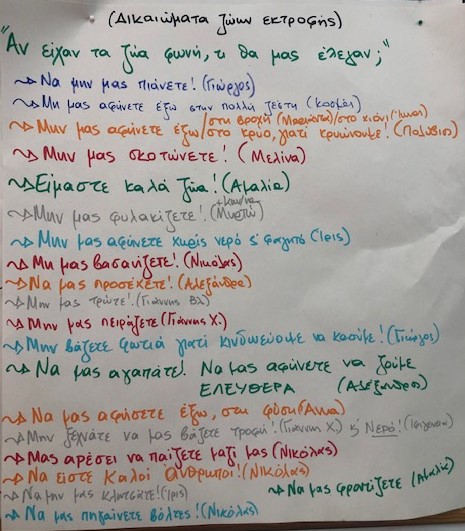 (Δικαιώματα ζώων εκτροφής)
"Αν είχαν τα ζώα φωνή, τι θα μας έλεγαν;"
Να μην μας πιάνετε! (Γιώργος)
Μη μας αφήνετε έξω στην πολλή ζέστη (Κοσμάς)
/στη βροχή /στο χιόνι
Μην μας αφήνετε έξω/στο κρύο, γιατί κρυώνουμε! (Πολύβιος)
Μην μας σκοτώνετε! (Μελίνα)
Είμαστε καλά ζώα! (Αμαλία)
Μην μας φυλακίζετε! (Μυρτώ)
Μην μας αφήνετε χωρίς νερό ς' φαγητό (Ίρις)
Μη μας βασανίζετε! (Νικόλας)
Να μας προσέχετε! (Αλεξάνδρα)
Μην μας τρώτε! (Γιάννης Βλ)
Μην μας πειράζετε (Γιάννης Χ.)
Μην βάζετε φωτιά γιατί κινδυνεύουμε να καούμε! (Γιώργος)
Να μας αγαπάτε! Να μας αφήνετε να ζούμε
ΕΛΕΥΘΕΡΑ (Αλέξανδρος)
Να μας αφήσετε έξω, στη φύση (Άννα)
Μην ξεχνάτε να μας βάζετε τροφή! (Γιάννης Χ.) ς' Νερό! (Ιφιγένεια)
Μας αρέσει να παίζετε μαζί μας (Νικόλας)
Να είστε καλοί άνθρωποι! (Νικόλας)
Να μην μας κλωτσάτε! (Ίρις)
Να μας φροντίζετε (Αμαλία)
Να μας πηγαίνετε βόλτες! (Νικόλας)